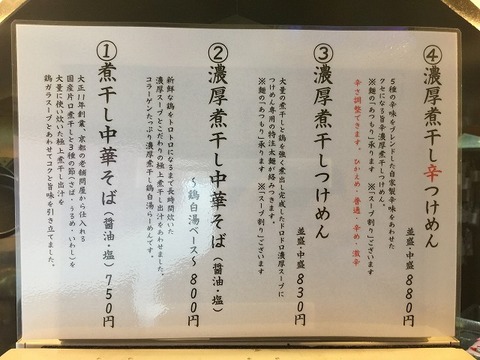 ④濃厚煮干し辛つけめん
並盛・中盛 880円
5種の辛味をブレンドした自家製辛味をあわせた
クセになる旨辛濃厚煮干しつけめん。
※麺の「あつもり」承ります ※“スープ割り”ございます
辛さ調整できます。 ひかえめ・普通・辛め・激辛
③濃厚煮干しつけめん
並盛・中盛 830円
大量の煮干しと鶏を強く煮出し完成したドロドロ濃厚スープに
つけめん専用の特注太麺が絡みつきます。
※麺の「あつもり」承ります ※“スープ割り”ございます
②濃厚煮干し中華そば(醤油・塩)
〜鶏白湯ベース〜 800円
新鮮な鶏をトロトロになるまで長時間炊いた
濃厚スープとこだわりの極上煮干し出汁をあわせました。
コラーゲンたっぷり濃厚煮干し鶏白湯らーめんです。
①煮干し中華そば(醤油・塩) 750円
大正11年創業、京都の老舗問屋から仕入れる
国産片口煮干しと3種の節(さば・うるめ・いわし)を
大量に使い炊いた極上煮干し出汁を
鶏ガラスープとあわせてコクと旨味を引き立てました。